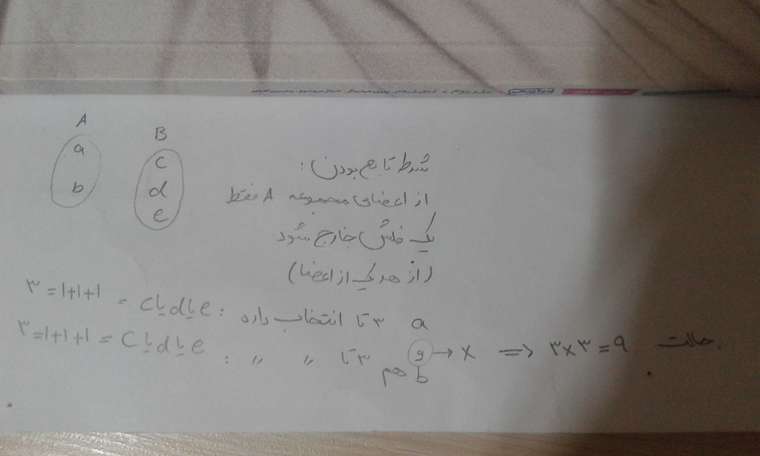 A
B
a
c
b
d
e
شرط تابع بودن:
از اعضای مجموعه A فقط
یک فلش خارج شود
(از هر یک از اعضا)
a ۳ تا انتخاب داره : c یا d یا e = ۱+۱+۱ = ۳
و → × ⇒ ۳×۳=۹ حالت.
b هم ۳ تا " " : c یا d یا e = ۱+۱+۱ = ۳